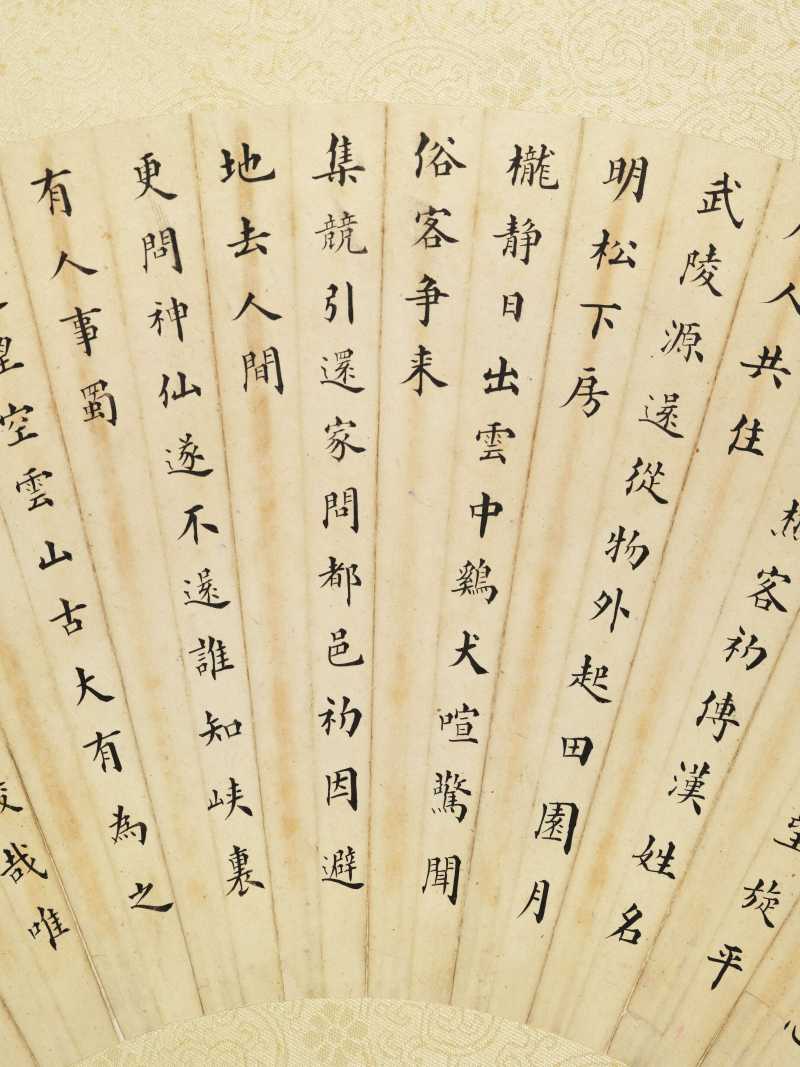 旋平
樵客初傳漢姓名
人共住
武陵源還從物外起田園月
明松下房
櫳靜日出雲中鷄犬喧驚聞
俗客争来
集競引還家問都邑初因避
地去人間
更問神仙遂不還誰知峽裏
有人事蜀
望空雲山古大有為之
哉唯